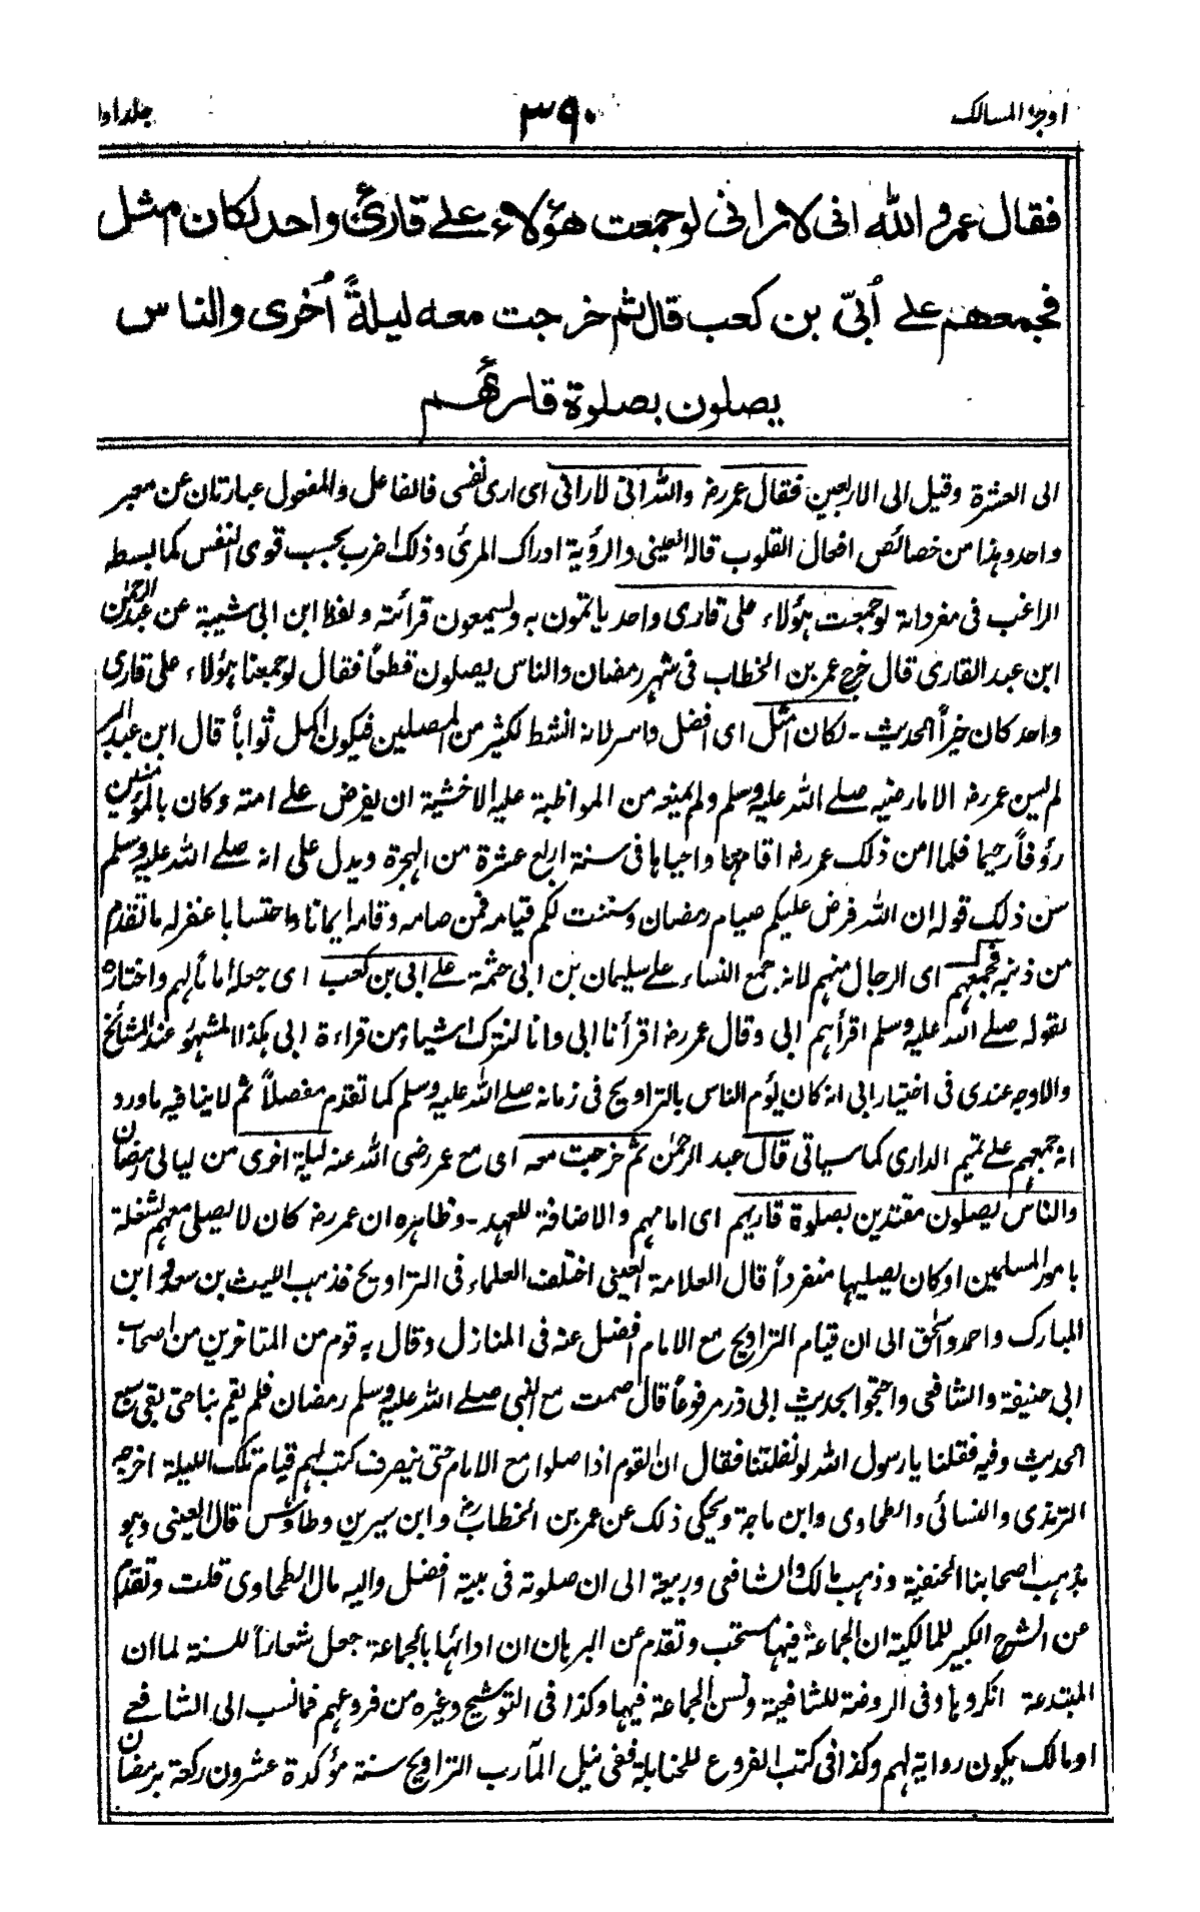 اوجز المسالك ٣٩٠ جلد اول
فقال عمر والله انى لارانى لوجمعت هؤلاء على قارئ واحد لكان امثل
فجمعهم على أُبىّ بن كعب قال ثم خرجت معه ليلةً أُخرى والناس
يصلون بصلوة قارئهم
الى العشرة وقيل الى الاربعين فقال عمر رضـ والله انى لارانى اى ارى نفسى فالفاعل والمفعول عبارتان عن معبر
واحد وهذا من خصائص افعال القلوب قاله العينى والرؤية ادراك المرئ وذلك اضرب بحسب قوى النفس كما بسطه
الراغب فى مفرداته لوجمعت هؤلاء على قارى واحد ياتمون به ويسمعون قرائته ولفظ ابن ابى شيبة عن عبد الرحمن
ابن عبد القارى قال خرج عمر بن الخطاب فى شهر رمضان والناس يصلون قطعاً فقال لوجمعنا هؤلاء على قارى
واحد كان خيراً الحديث - لكان امثل اى افضل واسر لانه انشط لكثير من المصلين فيكون اكمل ثواباً قال ابن عبد البر
لم يسن عمر رضـ الا مارضيه صلے الله عليه وسلم ولم يمنعه من المواظبة عليه الا خشية ان يفرض علے امته وكان بالمؤمنين
رؤفاً رحيما فلما امن ذلك عمر رضـ اقامها واحياها فى سنة اربع عشرة من الهجرة ويدل على انه صلے الله عليه وسلم
سن ذلك قوله ان الله فرض عليكم صيام رمضان وسننت لكم قيامه فمن صامه وقامه ايمانا واحتسابا غفر له ما تقدم
من ذنبه فجمعهم اى الرجال منهم لانه جمع النساء علے سليمان بن ابى حثمة علے ابى بن كعب اى جعله اماماً لهم واختاره
لقوله صلے الله عليه وسلم اقرأهم ابى وقال عمر رضـ اقرأنا ابى وانا لنترك اشياء من قراءة ابى هكذا المشهور عند المشائخ
والاوجه عندى فى اختيار ابى انه كان يؤم الناس بالتراويح فى زمانه صلے الله عليه وسلم كما تقدم مفصلاً ثم لا ينافيه ما ورد
انه جمعهم علے تميم الدارى كما سياتى قال عبد الرحمٰن ثم خرجت معه اى مع عمر رضى الله عنه ليلة اخرى من ليالى رمضان
والناس يصلون مقتدين بصلوة قاريهم اى امامهم والاضافة للعهد - وظاهره ان عمر رضـ كان لا يصلى معهم لشغله
بامور المسلمين او كان يصليها منفرداً قال العلامة العينى اختلف العلماء فى التراويح فذهب الليث بن سعد وابن
المبارك واحمد واسحٰق الى ان قيام التراويح مع الامام افضل عنه فى المنازل وقال به قوم من المتاخرين من اصحاب
ابى حنيفة والشافعى واحتجوا بحديث ابى ذر مرفوعاً قال صمت مع النبى صلے الله عليه وسلم رمضان فلم يقم بنا حتى بقى سبع
الحديث وفيه فقلنا يا رسول الله لو نفلتنا فقال ان القوم اذا صلوا مع الامام حتى ينصرف كتب لهم قيام تلك الليلة اخرجه
الترمذى والنسائى والطحاوى وابن ماجة ويحكى ذلك عن عمر بن الخطاب رضـ وابن سيرين وطاؤس قال العينى وهو
مذهب اصحابنا الحنفية وذهب مالك والشافعى وربيعة الى ان صلوته فى بيته افضل واليه مال الطحاوى قلت وتقدم
عن الشرح الكبير للمالكية ان الجماعة فيها مستحب وتقدم عن البرهان ان ادائها بالجماعة جعل شعاراً للسنة لما ان
المبتدعة انكروها وفى الروضة للشافعية وتسن الجماعة فيها وكذا فى التوشيح وغيره من فروعهم فما نسب الى الشافعے
او مالك يكون رواية لهم وكذا فى كتب الفروع للحنابلة ففى نيل المآرب التراويح سنة مؤكدة عشرون ركعة برمضان